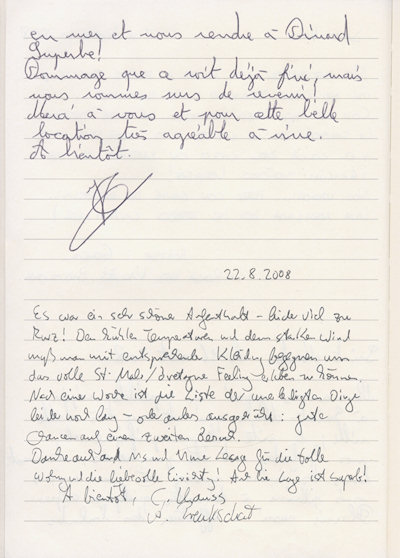 en mer et nous rendre à Dinard
Superbe!
Dommage que ce soit déjà fini, mais
nous sommes surs de revenir!
Merci à vous et pour cette belle
location très agréable à vivre.
A bientôt.
22.8.2008
Es war ein sehr schöner Aufenthalt – leider viel zu
kurz! Den kühlen Temperaturen und dem starken Wind
muß man mit entsprechender Kleidung begegnen um
das volle St. Malo/Bretagne Feeling erleben zu können.
Nach einer Woche ist die Liste der unerledigten Dinge
leider noch lang – oder anders ausgedrückt: gute
Chancen auf einen zweiten Besuch.
Danke auch an Ms und Mme Lesage für die tolle
Wohnung und die liebevolle Einrichtung! Auch die Lage ist superb!
A bientôt, C. Krauss